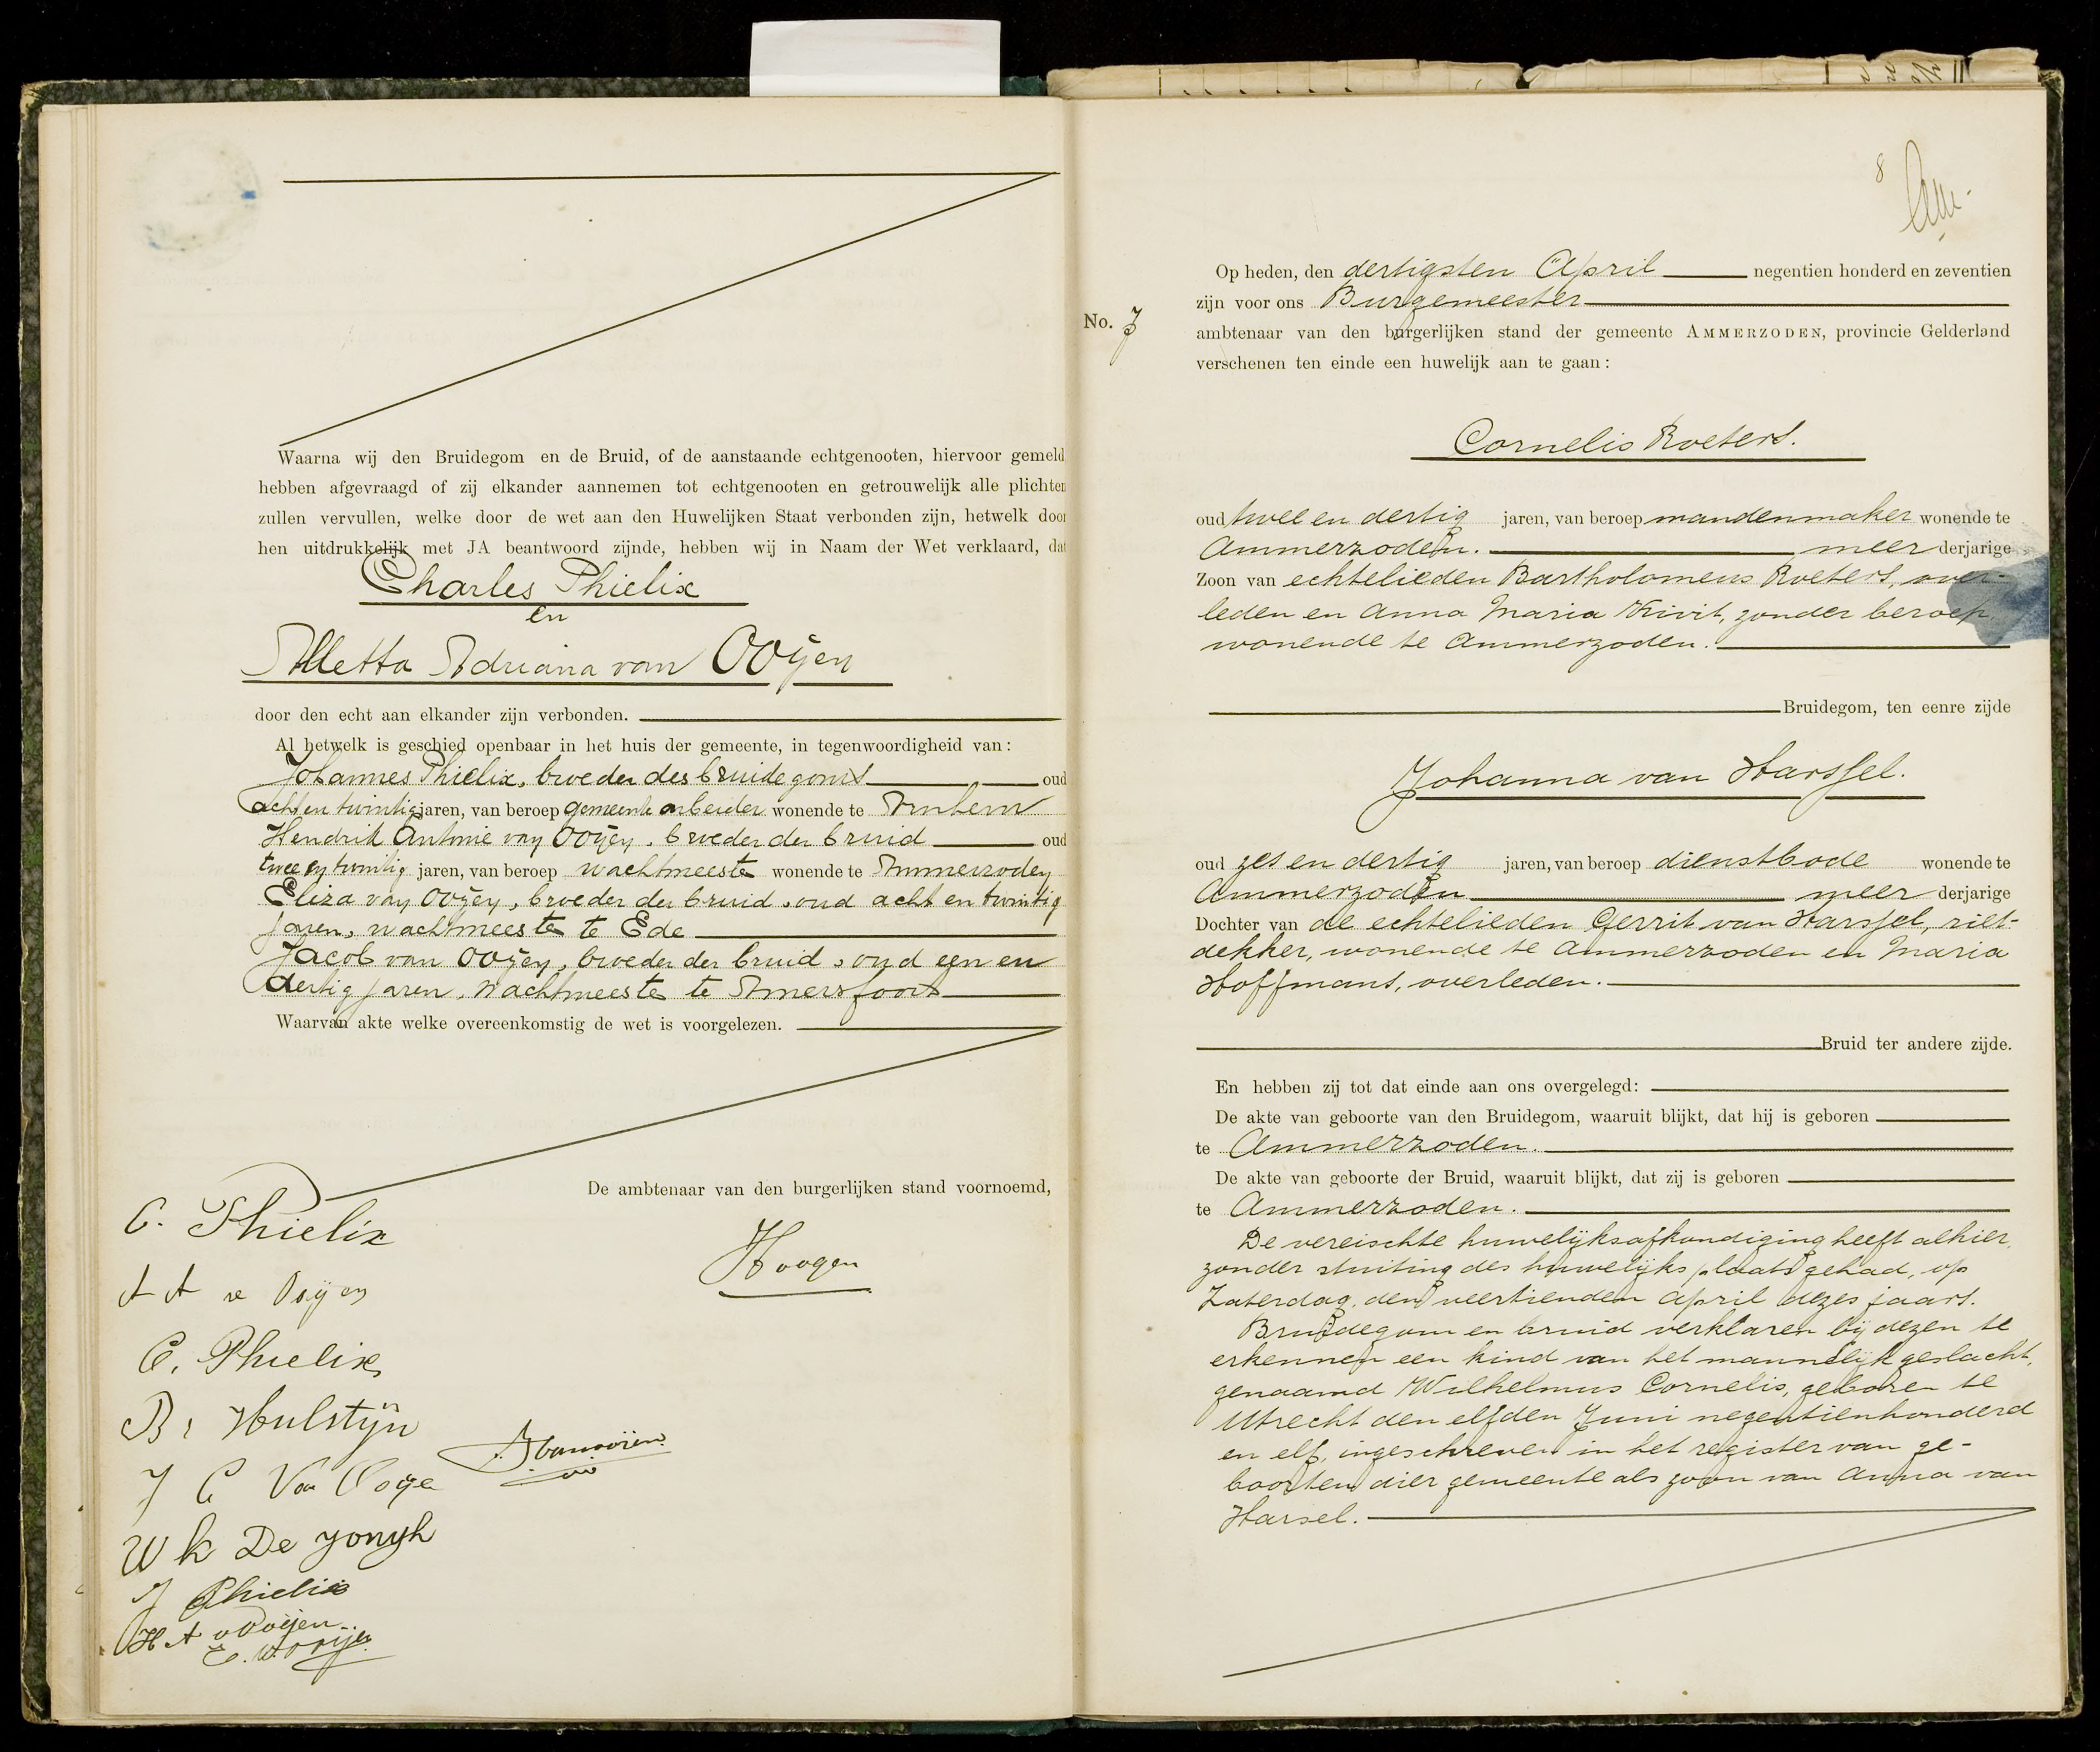 Waarna wij den Bruidegom en de Bruid, of de aanstaande echtgenooten, hiervoor gemeld
hebben afgevraagd of zij elkander aannemen tot echtgenooten en getrouwelijk alle plichten
zullen vervullen, welke door de wet aan den Huwelijken Staat verbonden zijn, hetwelk door
hen uitdrukkelijk met JA beantwoord zijnde, hebben wij in Naam der Wet verklaard, dat
Charles Phielix
en
Alletta Adriana van Ooÿen
door den echt aan elkander zijn verbonden.
Al hetwelk is geschied openbaar in het huis der gemeente, in tegenwoordigheid van:
Johannes Phielix, broeder des bruidegoms oud
acht en twintig jaren, van beroep gemeente arbeider wonende te Arnhem
Hendrik Antonie van Ooÿen, broeder der bruid oud
twee en twintig jaren, van beroep wachtmeester wonende te Ammerzoden
Eliza van Ooÿen, broeder der bruid, oud acht en twintig
jaren, wachtmeester te Ede
Jacob van Ooÿen, broeder der bruid, oud een en
dertig jaren, wachtmeester te Amersfoort
Waarvan akte welke overeenkomstig de wet is voorgelezen.
De ambtenaar van den burgerlijken stand voornoemd,
C. Phielix
A A v Ooÿen
Hoogen
C. Phielix
B. Hulstÿn
J C Van Ooye
W k De Jongh
J Phielix
H A v Ooijen
8
Op heden, den dertigsten April negentien honderd en zeventien
zijn voor ons Burgemeester
No. 7
ambtenaar van den burgerlijken stand der gemeente AMMERZODEN, provincie Gelderland
verschenen ten einde een huwelijk aan te gaan:
Cornelis Roeters.
oud twee en dertig jaren, van beroep mandenmaker wonende te
Ammerzoden. meer derjarige
Zoon van echtelieden Bartholomeus Roeters, over-
leden en Anna Maria Krivit, zonder beroep,
wonende te Ammerzoden.
Bruidegom, ten eenre zijde
Johanna van Harssel.
oud zes en dertig jaren, van beroep dienstbode wonende te
Ammerzoden meer derjarige
Dochter van de echtelieden Gerrit van Harssel, riet-
dekker, wonende te Ammerzoden en Maria
Hoffmans, overleden.
Bruid ter andere zijde.
En hebben zij tot dat einde aan ons overgelegd:
De akte van geboorte van den Bruidegom, waaruit blijkt, dat hij is geboren
te Ammerzoden.
De akte van geboorte der Bruid, waaruit blijkt, dat zij is geboren
te Ammerzoden.
De vereischte huwelijksafkondiging heeft alhier,
zonder stuiting des huwelijks plaats gehad, op
Zaterdag, den veertienden April dezes jaars.
Bruidegom en bruid verklaren bij dezen te
erkennen een kind van het mannelijk geslacht,
genaamd Wilhelmus Cornelis, geboren te
Utrecht den elfden Juni negentienhonderd
en elf, ingeschreven in het register van ge-
boorten dier gemeente als zoon van Anna van
Harsel.